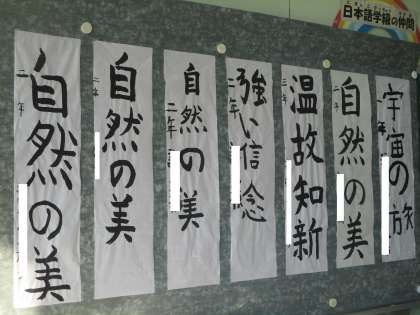 日本語学級の仲間
宇宙の旅
一年
自然の美
二年
温故知新
三年
強い信念
二年
自然の美
二年
自然の美
二年
自然の美
二年